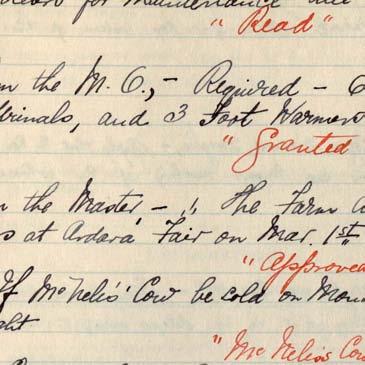 for Maintenance
"Read"
the M. O., - Required -
Urinals, and 3 Foot Warmers
"Granted
the Master, - " The Farm
at Ardara Fair on Mar. 1st
"Approved
If McNelis' Cow be sold on
"McNelis Cow